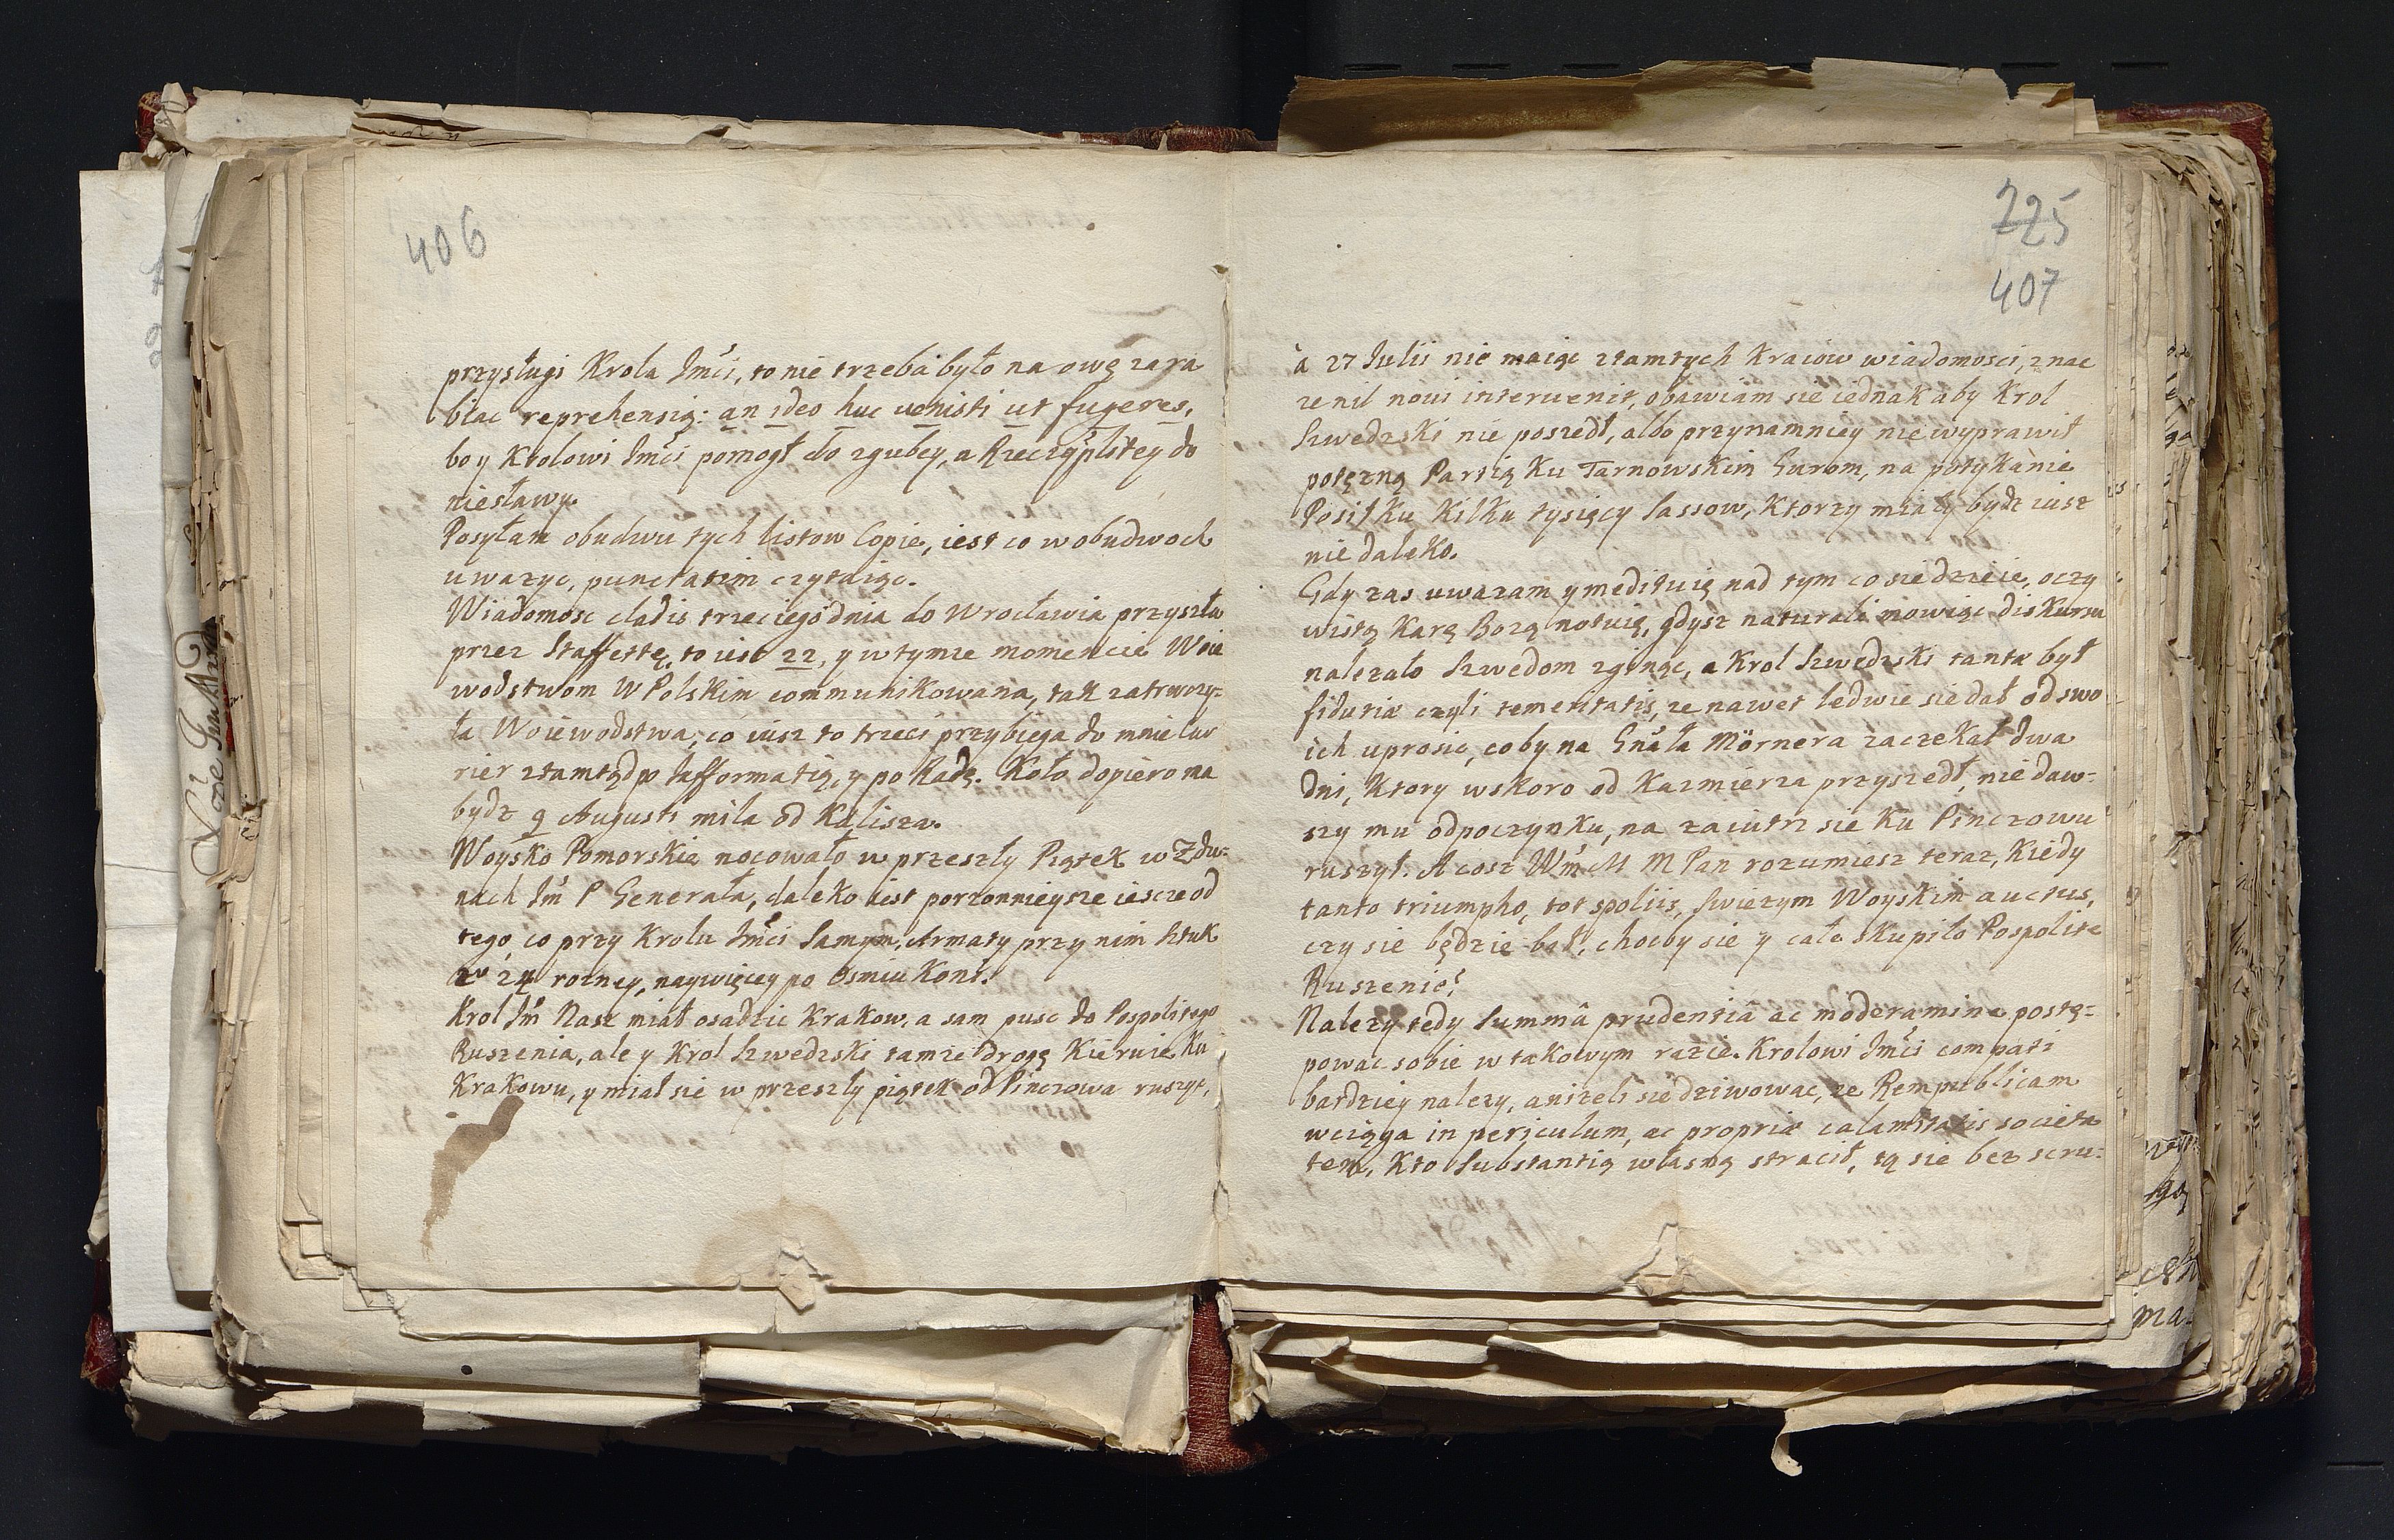 406
przysługi Krola Jmći, to nie trzeba było na owę zara
biac reprehensią: an ideo huc uenisti ut fugeres,
bo y Krolowi Jmći pomogł do zguby, a Rzeczyplitey do
niesławy.
Posyłam obudwu tych listow Copie, iest co w obudwoch
uwazyc, punctatim czytaiąc.
Wiadomosc cladis trzeciego dnia do Wrocławia przyszła
przez Staffettę, to iest 22, y w tymze momencie Woie
wodstwom w Polskim communikowana, tak zatrwozy-
ła Woiewodstwa, co iusz to trzeci przybiega do mnie Cur
rier ztamtąd po Jnfformatią, y po Radę. Koło dopiero ma
bydz 9 Augusti mila od Kalisza.
Woysko Pomorskie nocowało w przeszły Piątek w Zdu-
nach Jm P Generała, daleko iest porzonnieysze iescze od
tego, co przy Krolu Jmći Samym, Armaty przy nim sztuk
24 rozney, naywięcey po osmiu Koni.
Krol Jm Nasz miał osadzic Krakow, a sam pusc do Pospolitego
Ruszenia, ale y Krol Szwedzski tamze drogę Kieruie Ku
Krakowu, y miał sie w przeszły piątek od Pinczowa ruszyc,
225
407
à 27 Julii nie maiąc ztamtych Kraiow wiadomosci, znac
ze nil noui interuenit, obawiam sie iednak aby Krol
Szwedzski nie poszedł, albo przynamniey nie wyprawił
potęzną Partią Ku Tarnowskim Gurom, na potykanie
Posiłku Kilku tysięcy Sassow, Ktorzy mieli bydz iusz
nie daleko.
Gdy zas uwazam y medituię nad tym co sie dzieie, oczy
wistą Karę Bozą notuię, gdysz naturali mowiąc diskursu
nalezało Szwedom zginąc, a Krol Szwedzski tantæ był
fidutiæ czyli temeritatis, ze nawet ledwie sie dał od swo
ich uprosic, coby na Gnała Mörnera zaczekał dwa
dni, Ktory wskoro od Kazmierza przyszedł, nie daw-
szy mu odpoczynku, na zaiutrz sie Ku Pinczowu
ruszył. A cosz Wm M M Pan rozumiesz teraz, Kiedy
tanto triumpho, tot spoliis, swiezym Woyskim auctus,
czy sie będzie bał, chocby sie y całe skupiło Pospolite
Ruszenie?
Nalezy tedy Summâ prudentiâ ac moderamine postę-
powac sobie w takowym razie. Krolowi Jmći compati
bardziey nalezy, anizeli sie dziwowac, ze Rempublicam
wciąga in periculum, ac propriæ calamitatis societa
tem, Kto Substantią własną stracił, tą sie bez scru-